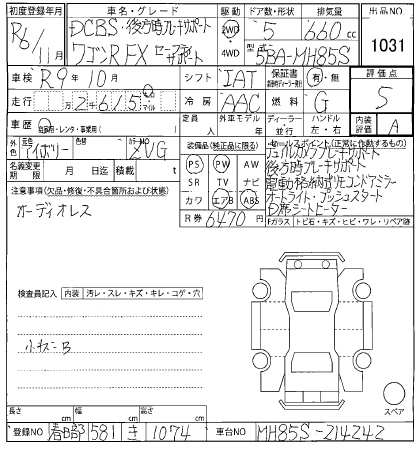 初度登録年月
車名・グレード
駆動
ドア数・形状
排気量
出品NO
R6/11月
DCBS・後方時ブレーキサポート
ワゴンR FX セーフティサポート
2WD
4WD
5
660cc
型式
5BA-MH85S
1031
車検
R9年10月
シフト
IAT
保証書
有・無
評価点
走行
2千615
マイル
冷房
AAC
燃料
G
5
車歴
自家用・レンタ・事業用( )
定員
人
外車モデル
年
ディーラー
並行
ハンドル
左・右
内装評価
A
外色
元色
アイボリー
色替
カラーNO
ZVG
名義変更期限
月 日迄
積載
t
装備品(純正品に限る)
PS PW AW
SR TV ナビ
カワ エアB ABS
R券 6470 円
セールスポイント(正常に作動するもの)
デュアルカメラブレーキサポート
後方時ブレーキサポート
電動格納式リモコンドアミラー
オートライト・プッシュスタート
D席シートヒーター
Fガラス
トビ石・キズ・ヒビ・ワレ・リペア跡
注意事項(欠品・修復・不具合箇所および状態)
オーディオレス
検査員記入
内装
汚レ・スレ・キズ・キレ・コゲ・穴
小キズB
スペア
長さ
cm
幅
cm
高さ
cm
登録NO
春日部 581 き 1074
車台NO
MH85S-214242